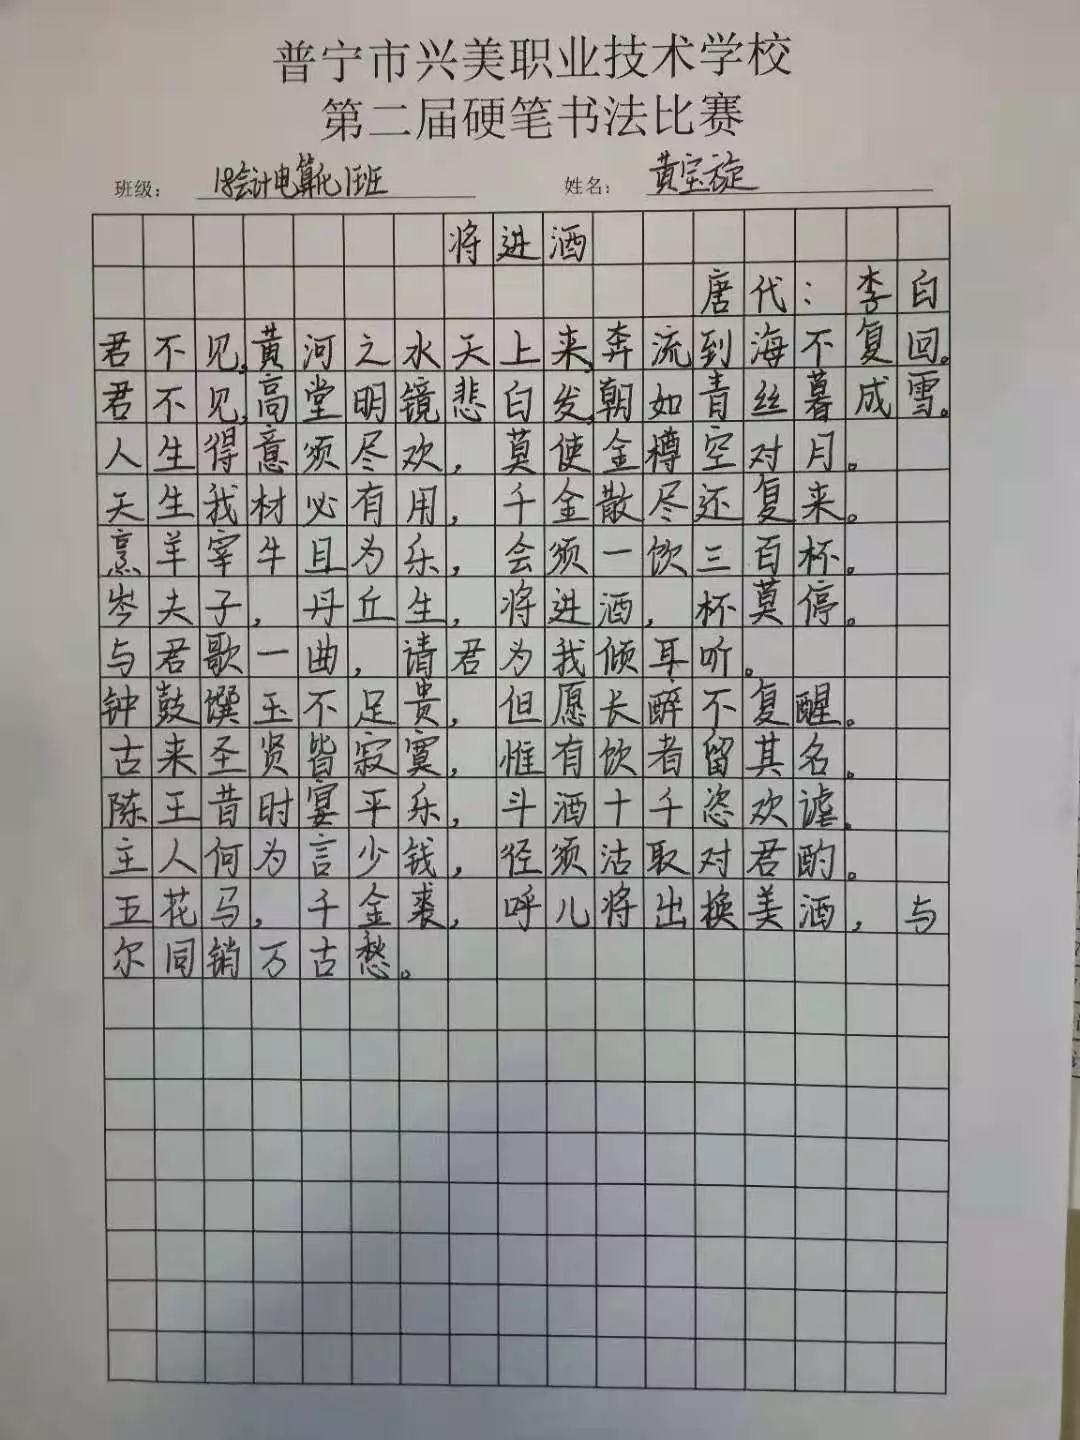 普宁市兴美职业技术学校
第二届硬笔书法比赛
班级： 18会计电算化1班 姓名： 黄宝旋
将进酒
唐代：李白
君不见,黄河之水天上来,奔流到海不复回。
君不见,高堂明镜悲白发,朝如青丝暮成雪。
人生得意须尽欢，莫使金樽空对月。
天生我材必有用，千金散尽还复来。
烹羊宰牛且为乐，会须一饮三百杯。
岑夫子，丹丘生，将进酒，杯莫停。
与君歌一曲，请君为我倾耳听。
钟鼓馔玉不足贵，但愿长醉不复醒。
古来圣贤皆寂寞，惟有饮者留其名。
陈王昔时宴平乐，斗酒十千恣欢谑。
主人何为言少钱，径须沽取对君酌。
五花马，千金裘，呼儿将出换美酒，与
尔同销万古愁。